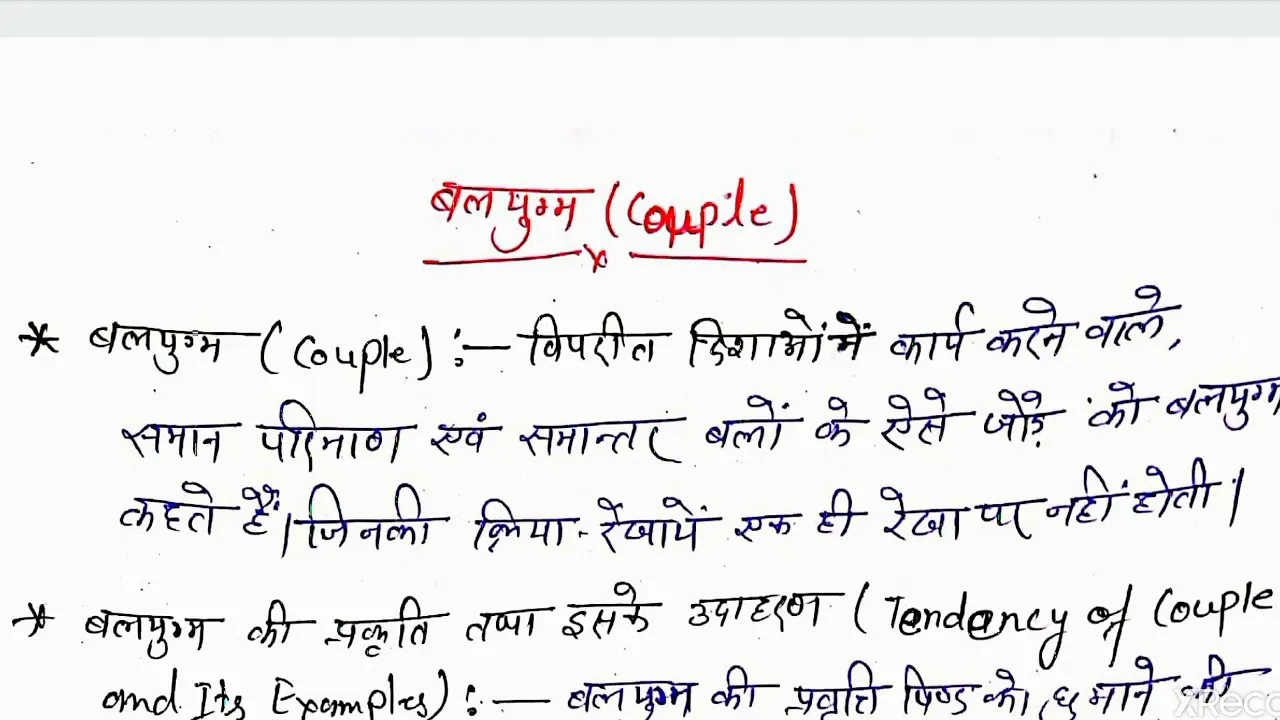 बलयुग्म (Couple)
* बलयुग्म (Couple) :- विपरीत दिशाओं में कार्य करने वाले,
समान परिमाण एवं समान्तर बलों के ऐसे जोड़े को बलयुग्म
कहते हैं। जिनकी क्रिया-रेखायें एक ही रेखा पर नहीं होती।
* बलयुग्म की प्रकृति तथा इसके उदाहरण (Tendancy of Couple
and Its Examples) :- बलयुग्म की प्रवृत्ति पिण्ड को घुमाने की
XReco